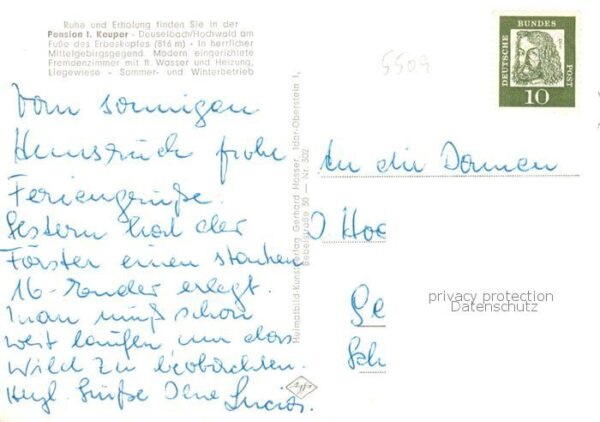 Ruhe und Erholung finden Sie in der
Pension I. Keuper - Deuselbach/Hochwald am
Fuße des Erbeskopfes (816 m) - In herrlicher
Mittelgebirgsgegend. Modern eingerichtete
Fremdenzimmer mit fl. Wasser und Heizung,
Liegewiese - Sommer- und Winterbetrieb
5509
DEUTSCHE BUNDES POST
10
Vom sonnigen
Hunsrück frohe
Feriengrüße.
Gestern hat der
Förster einen starken
16-Ender erlegt.
Man muß schon
weit laufen um das
Wild zu beobachten.
Herzl. Grüße Deine
Heimatbild-Kunstverlag Gerhard Hosser, Idar-Oberstein 1,
Bebelstraße 30 — Nr. 302
Agfa
An die Damen
Hoe
Ge
Sch
privacy protection
Datenschutz